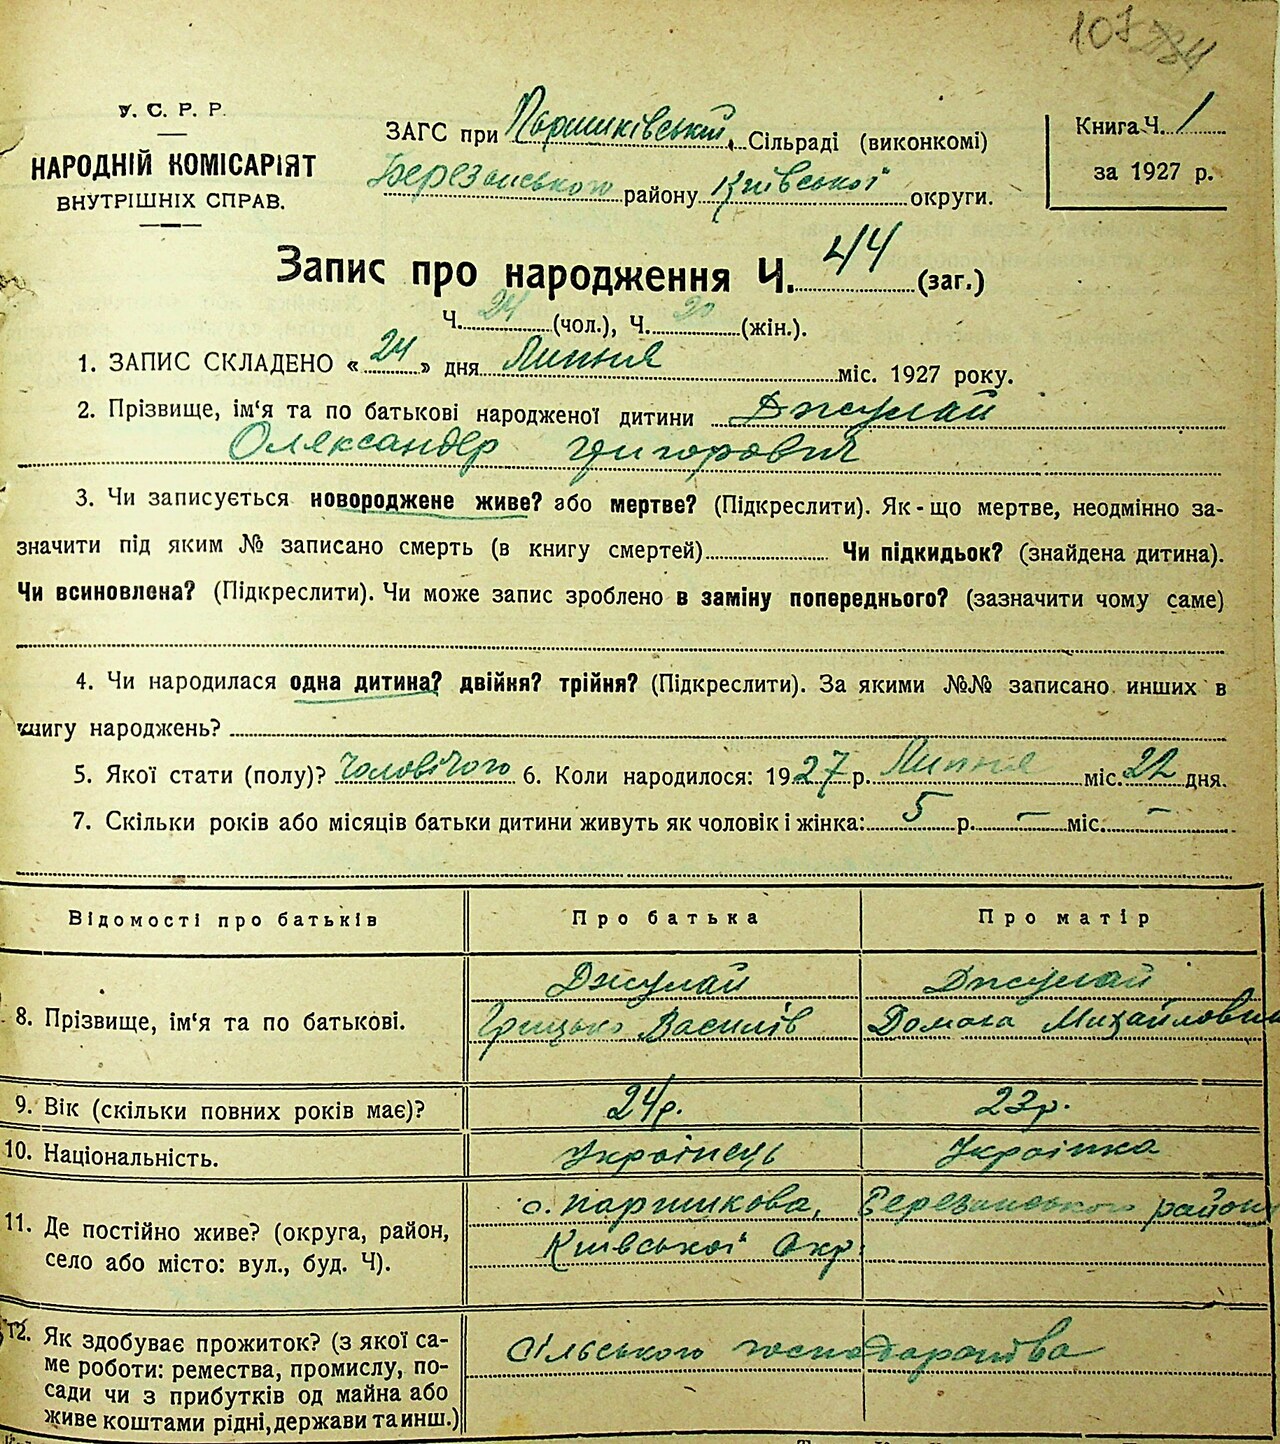 107
У. С. Р. Р.
НАРОДНІЙ КОМІСАРІЯТ
ВНУТРІШНІХ СПРАВ.
ЗАГС при Паришківській Сільраді (виконкомі)
Березанського району Київської округи.
Книга Ч. 1
за 1927 р.
Запис про народження Ч. 44 (заг.)
Ч. 24 (чол.), Ч. 20 (жін.).
1. ЗАПИС СКЛАДЕНО « 24 » дня Липня міс. 1927 року.
2. Прізвище, ім‘я та по батькові народженої дитини Джулай
Олександер Григорович
3. Чи записується новороджене живе? або мертве? (Підкреслити). Як-що мертве, неодмінно за-
значити під яким № записано смерть (в книгу смертей) Чи підкидьок? (знайдена дитина).
Чи всиновлена? (Підкреслити). Чи може запис зроблено в заміну попереднього? (зазначити чому саме)
4. Чи народилася одна дитина? двійня? трійня? (Підкреслити). За якими №№ записано инших в
книгу народжень?
5. Якої стати (полу)? чоловічого 6. Коли народилося: 1927 р. Липня міс. 22 дня.
7. Скільки років або місяців батьки дитини живуть як чоловік і жінка: 5 р. – міс. –
Відомості про батьків Про батька Про матір
8. Прізвище, ім‘я та по батькові.
Джулай Джулай
Грицько Василів Домаха Михайловна
9. Вік (скільки повних років має)? 24р. 23р.
10. Національність. Українець Українка
11. Де постійно живе? (округа, район,
село або місто: вул., буд. Ч).
с. Паришкова, Березанського району
Київської Окр.
12. Як здобуває прожиток? (з якої са-
ме роботи: ремества, промислу, по-
сади чи з прибутків од майна або
живе коштами рідні, держави та инш.)
сільського господарства